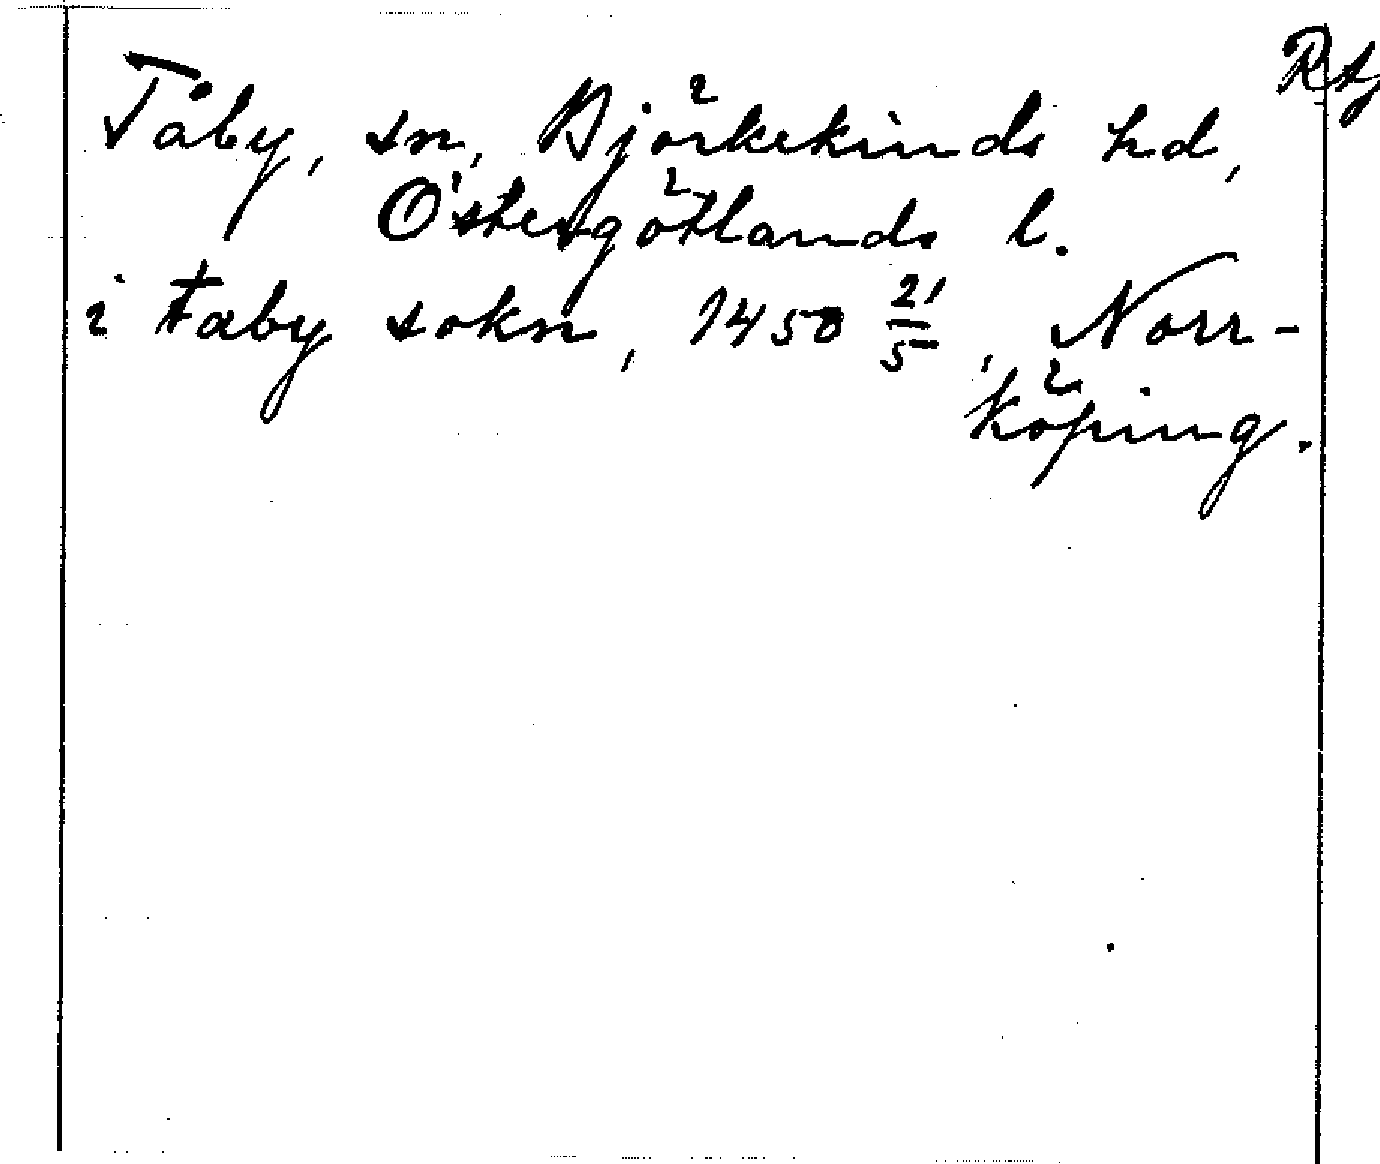 Tåby, sn, Björkekinds hd,
Östergötlands l.
i taby sokn, 1450 21/5, Norr-
köping.